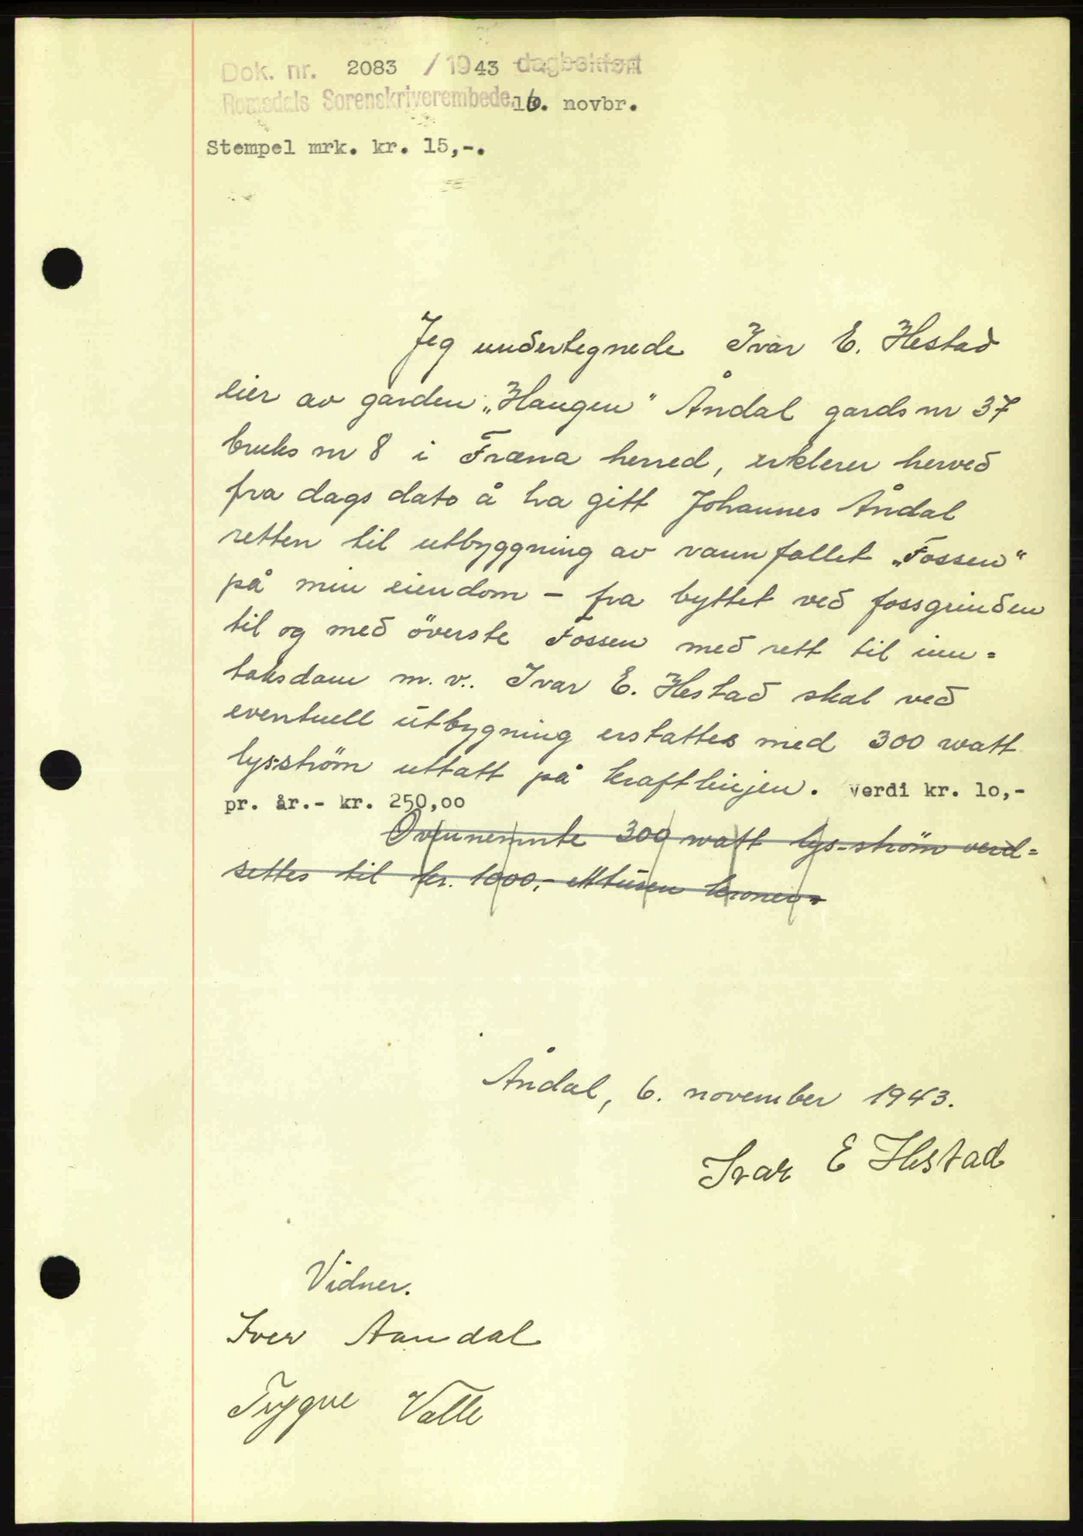 Dok. nr. 2083 / 1943 dagbokført
Romsdals Sorenskriverembede 16. novbr.
Stempel mrk. kr. 15,-.
Jeg undertegnede Ivar E. Hestad
eier av garden „Haugen" Åndal gards nr 37
bruks nr 8 i Fræna herred, erklerer herved
fra dags dato å ha gitt Johannes Åndal
retten til utbyggning av vannfallet „Fossen"
på min eiendom - fra byttet ved fossgrinden
til og med överste Fossen med rett til inn=
taksdam m.v.. Ivar E. Hestad skal ved
eventuell utbygning erstattes med 300 watt
lysström uttatt på kraftlinjen. verdi kr. 10,-
pr. år.- kr. 250,00
Ovennemnte 300 watt lys-ström verd=
settes til kr. 1000,- ettusen kroner-
Åndal, 6. november 1943.
Ivar E Hestad
Vidner.
Iver Aandal
Trygve Valle